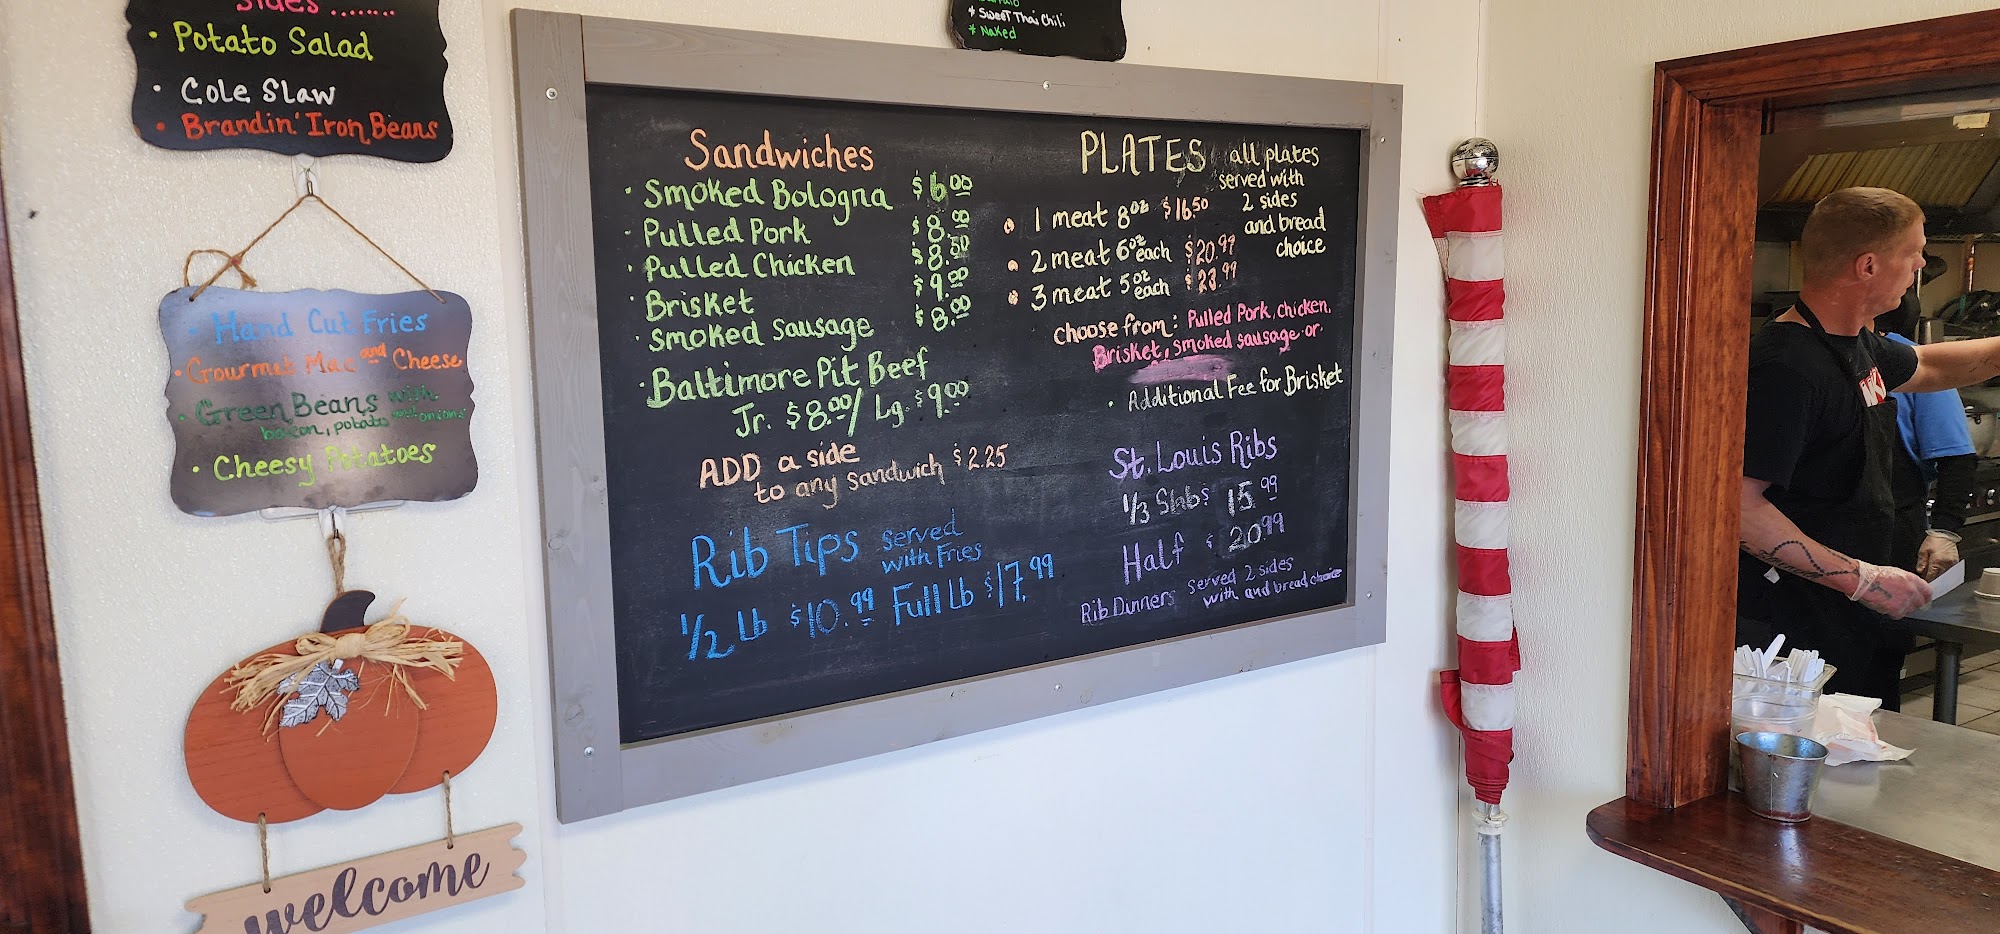 Sides ........
• Potato Salad
• Cole Slaw
• Brandin' Iron Beans
• Hand Cut Fries
• Gourmet Mac and Cheese
• Green Beans with
bacon, potato and onions
• Cheesy Potatoes
welcome
* Sweet Thai Chili
* Naked
Sandwiches
• Smoked Bologna $6.00
• Pulled Pork $8.00
• Pulled Chicken $8.50
• Brisket $9.00
• Smoked Sausage $8.00
• Baltimore Pit Beef
Jr. $8.00/ Lg. $9.00
ADD a side
to any sandwich $2.25
Rib Tips served
with Fries
1/2 Lb $10.99 Full Lb $17.99
PLATES all plates
served with
2 sides
and bread
choice
• 1 meat 8oz $16.50
• 2 meat 6oz each $20.99
• 3 meat 5oz each $23.99
Choose from: Pulled Pork, Chicken,
Brisket, Smoked sausage or
• Additional Fee for Brisket
St. Louis Ribs
1/3 Slabs 15.99
Half $20.99
Rib Dinners served 2 sides
with and bread choice